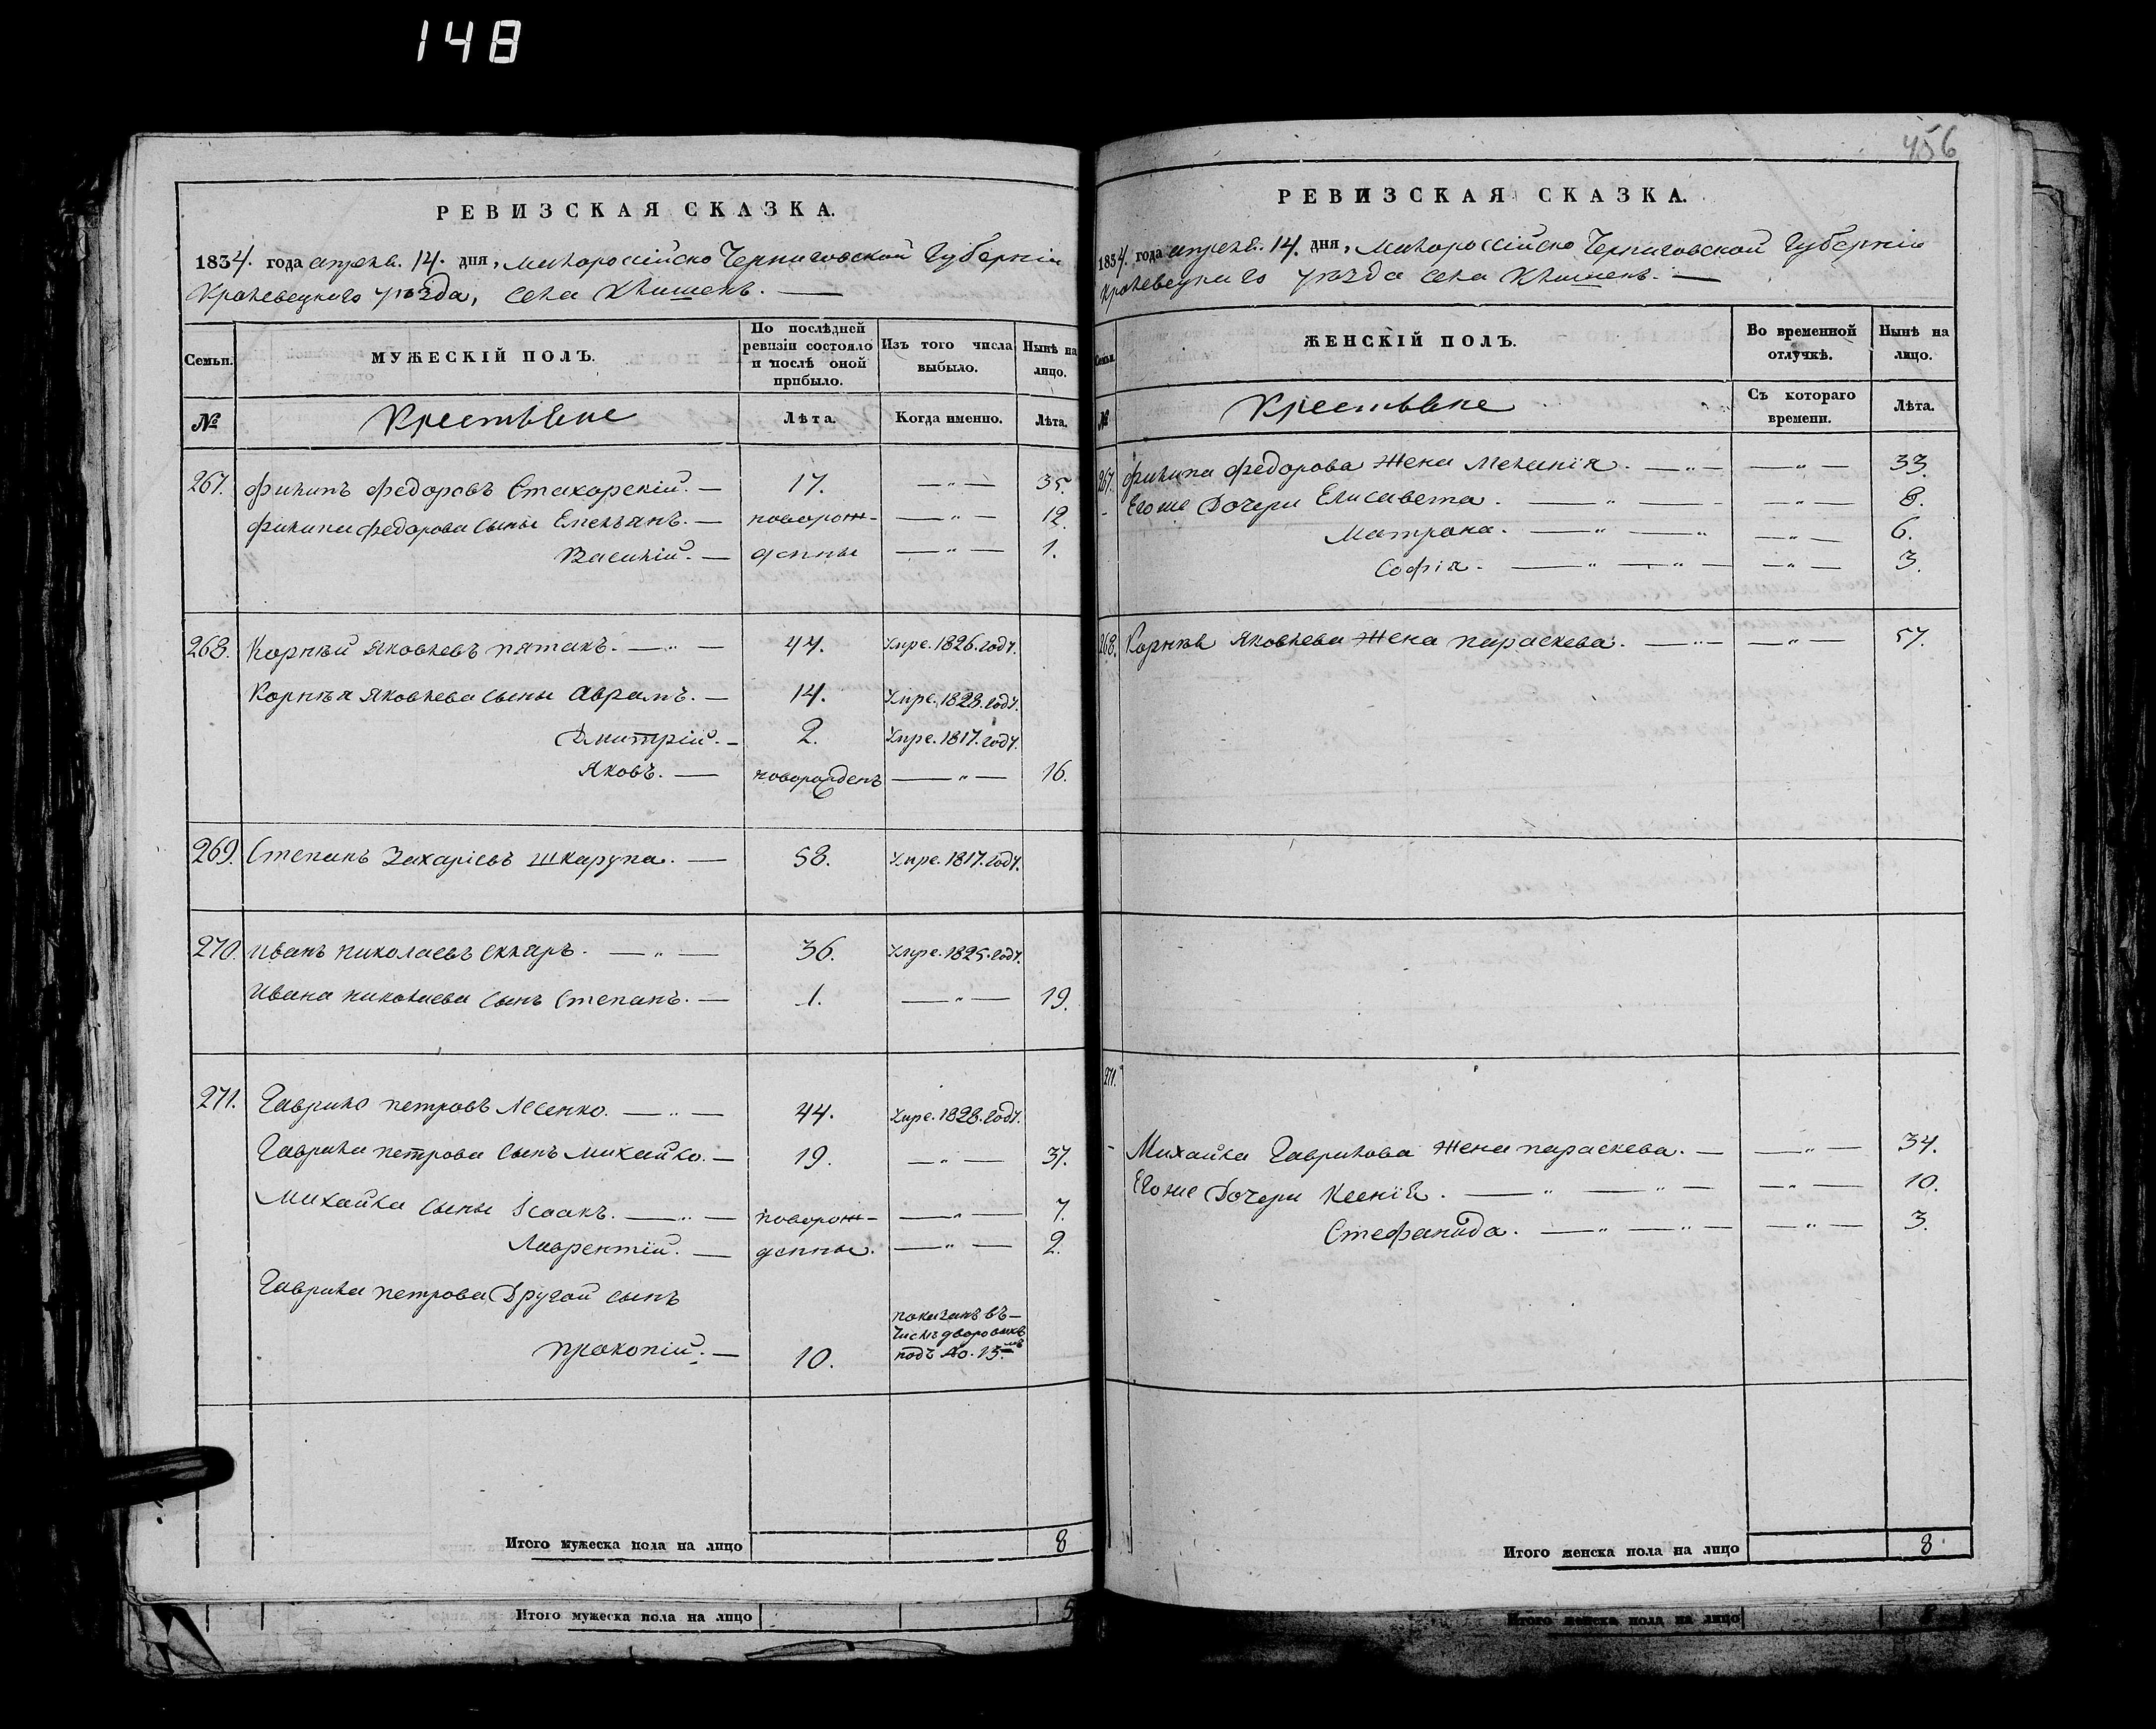 148
РЕВИЗСКАЯ СКАЗКА.
1834. года апреля. 14. дня, Малороссійско Черниговской Губерніи
Кролевецкого уѣзда, села Клишень. —
Семьи.
МУЖЕСКІЙ ПОЛЪ.
По послѣдней ревизіи состояло и послѣ оной прибыло.
Изъ того числа выбыло.
Нынѣ на лицо.
№
Крестьяне
Лѣта.
Когда именно.
Лѣта.
267. Филипъ Федоровъ Стахорскій. — 17. — „ — 35.
Филипа Федорова сыны Емельянъ. — новорож- — „ — 12.
Василій. — денны — „ — 1.
268. Корнѣй Яковлевъ пятакъ. — „ — 44. Умре. 1826. году.
Корнѣя Яковлева сыны Аврамъ. — 14. Умре. 1828. году.
Дмитрій. — 2. Умре. 1817. году.
Яковъ. — новорожденъ — „ — 16.
269. Степанъ Захаріевъ Шкарупа. — 58. Умре. 1817. году.
270. Иванъ Николаевъ Скляръ. — „ — 36. Умре. 1825. году.
Ивана николаева сынъ Степанъ. — 1. — „ — 19.
271. Гаврило петровъ Лесенко. — „ — 44. Умре. 1828. году.
Гаврила петрова сынъ Михайло. — 19. — „ — 37.
Михайла сыны Ісаакъ. — „ — новорож- — „ — 7.
Лаврентій. — денны. — „ — 2.
Гаврила петрова Другой сынъ
показанъ въ —
числѣ дворовыхъ
прокопій. — 10. подъ No. 15.мъ
Итого мужеска пола на лицо 8
Итого мужеска пола на лицо 5
456
РЕВИЗСКАЯ СКАЗКА.
1834. года апреля. 14. дня, Малороссійско Черниговской Губерніи
Кролевецкаго уѣзда села Клишень. —
Семьи.
ЖЕНСКІЙ ПОЛЪ.
Во временной отлучкѣ.
Нынѣ на лицо.
№
Крестьяне
Съ котораго времени.
Лѣта.
267. Филипа Федорова Жена Меланія. — „ — — „ — 33.
- Его же Дочери Елисавета. — „ — — „ — 8.
Матрона. — „ — „ — „ — 6.
Софія. — „ — „ — — „ — 3.
268. Корнѣя Яковлева Жена параскева. — „ — — „ — 57.
271.
- Михайла Гаврилова Жена параскева. — — „ — 34.
Его же Дочери Ксенія. — „ — „ — — „ — 10.
Стефанида. — „ — „ — — „ — 3.
Итого женска пола на лицо 8
Итого женска пола на лицо